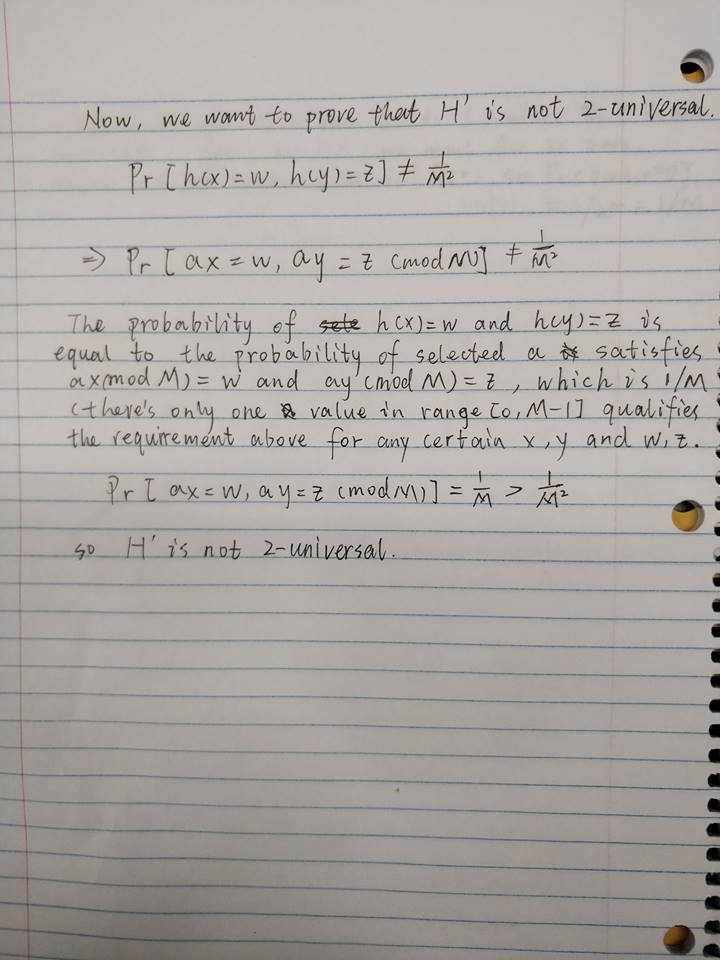 Now, we want to prove that H' is not 2-universal.
Pr [h(x)=w, h(y)=z] ≠ 1/M²
⇒ Pr [ax=w, ay=z (mod M)] ≠ 1/M²
The probability of h(x)=w and h(y)=z is
equal to the probability of selected a satisfies
ax(mod M)=w and ay(mod M)=z, which is 1/M
(there's only one value in range [0, M-1] qualifies
the requirement above for any certain x,y and w,z.
Pr [ax=w, ay=z (mod M)] = 1/M > 1/M²
so H' is not 2-universal.